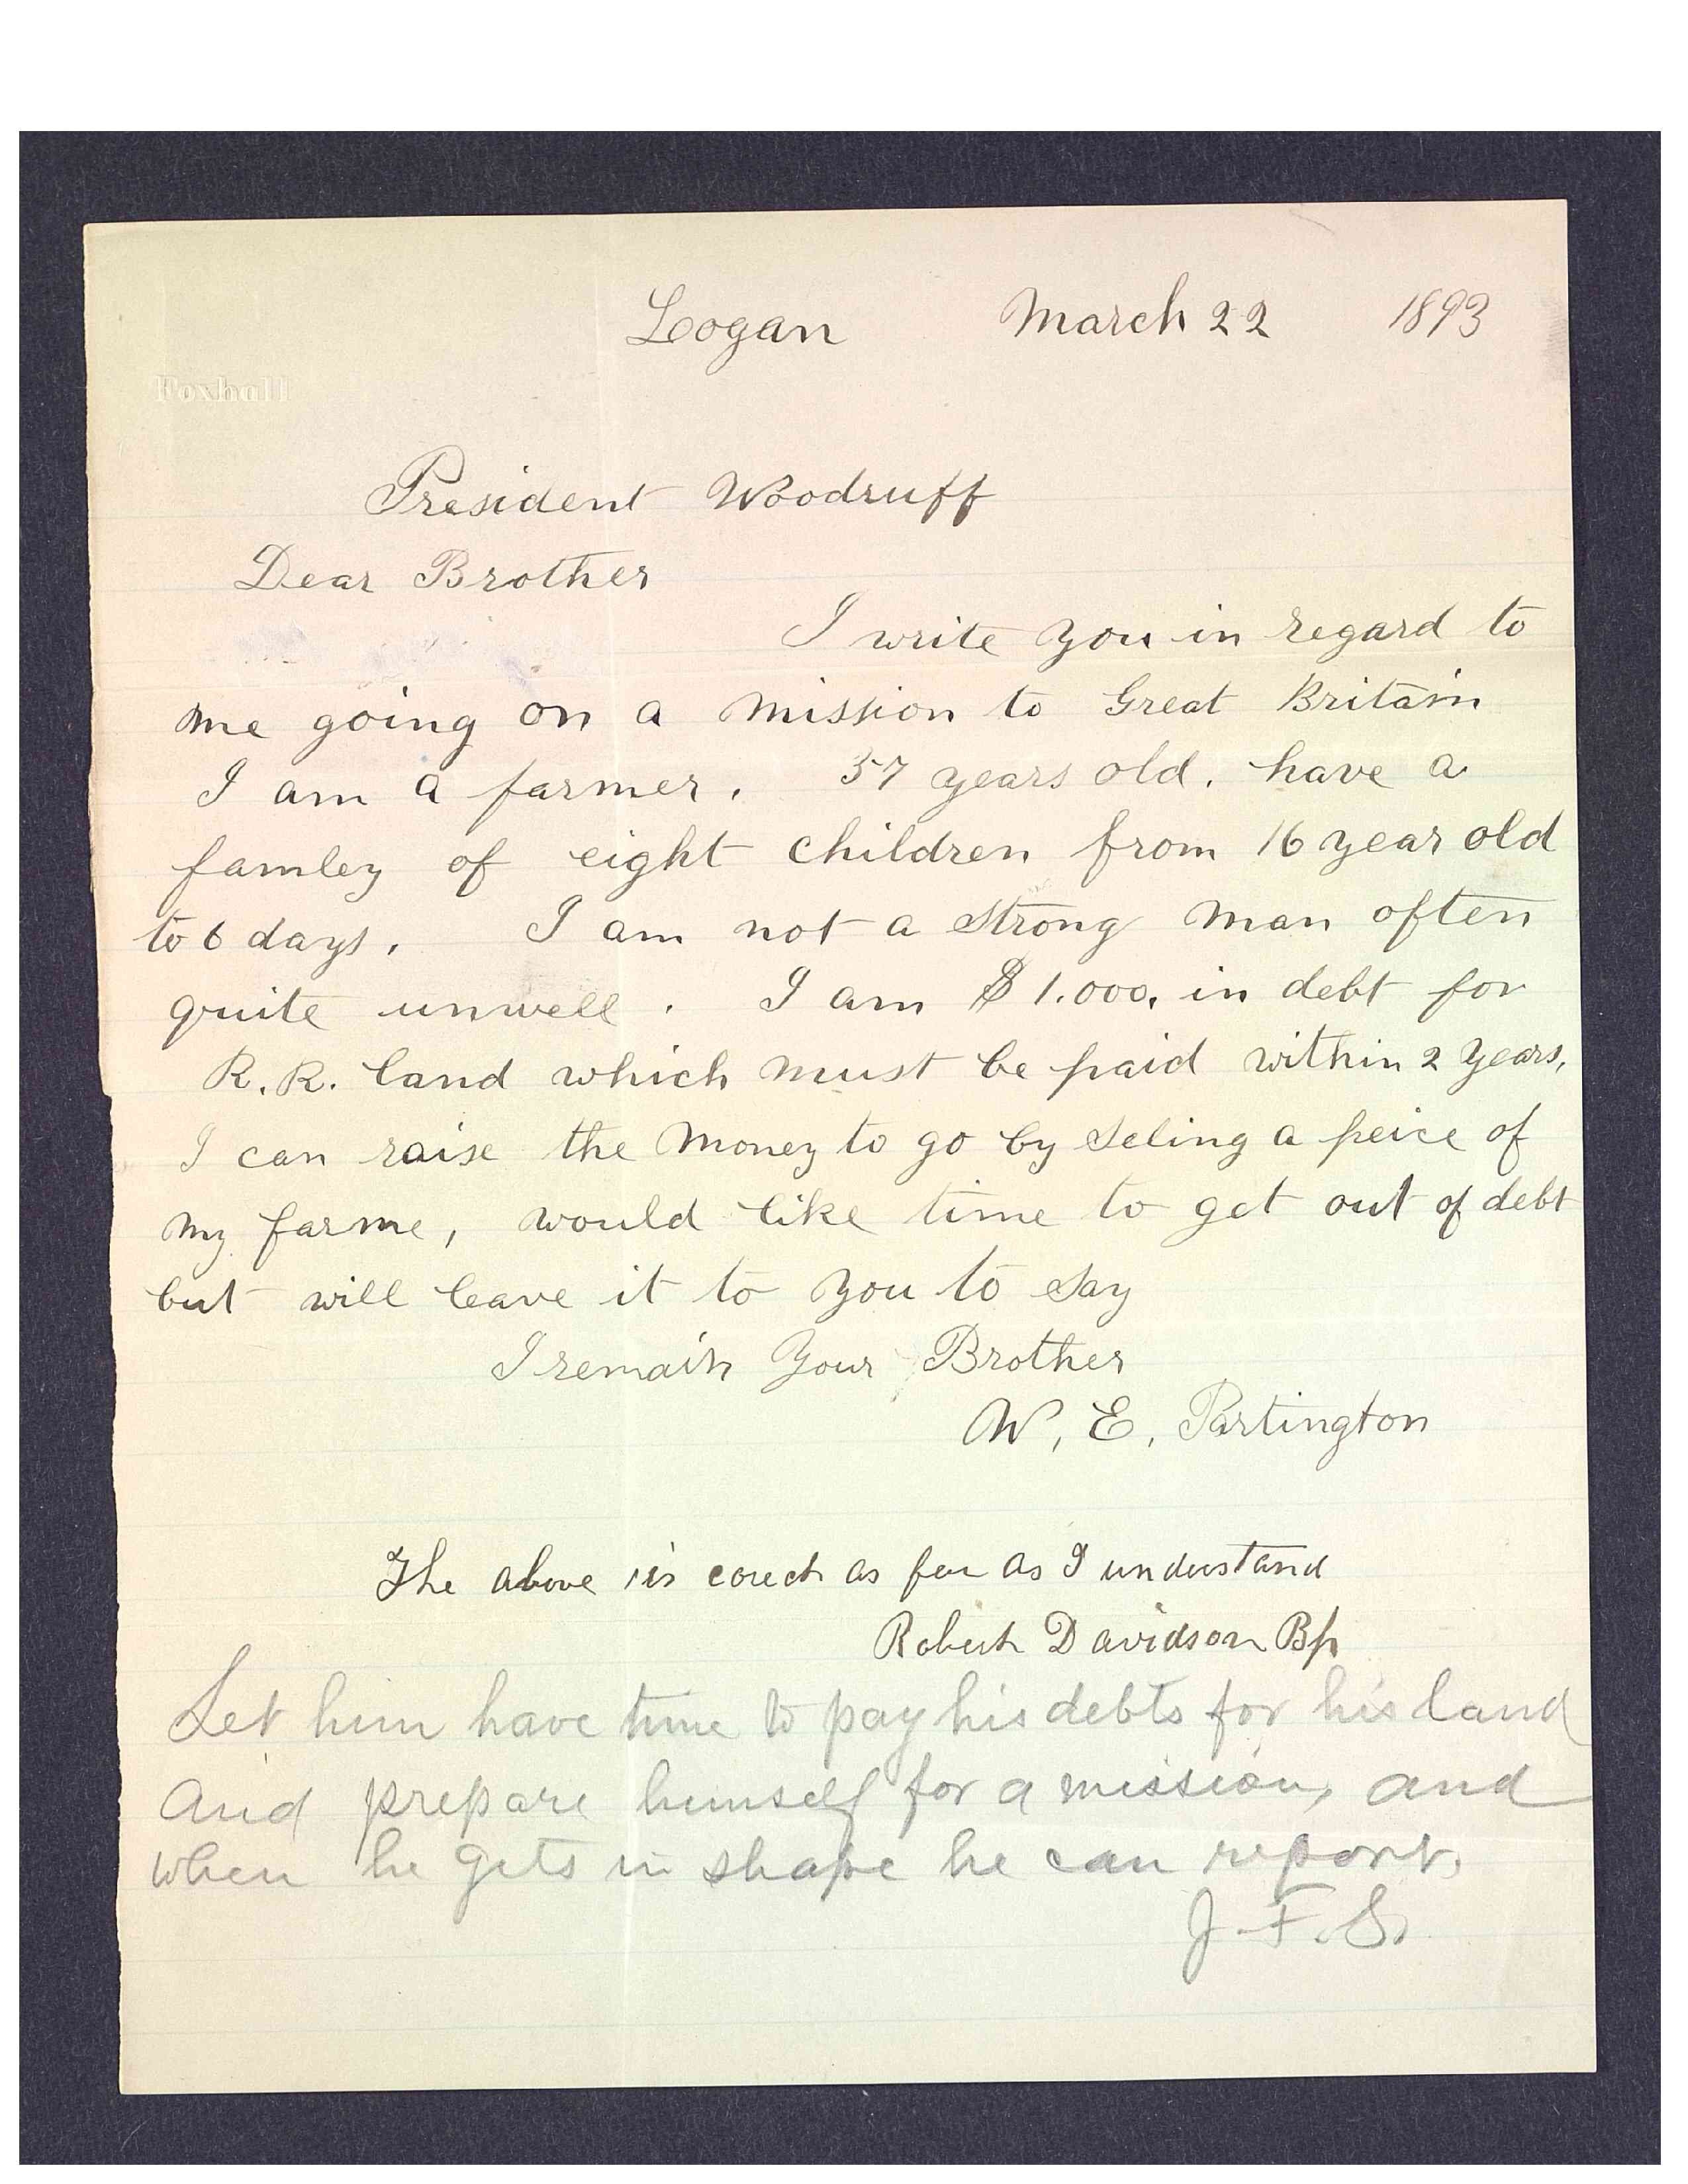 Logan March 22 1893
Foxhall
President Woodruff
Dear Brother
I write you in regard to
me going on a mission to Great Britain
I am a farmer. 37 years old. have a
famley of eight children from 16 year old
to 6 days. I am not a strong man often
quite unwell. I am $1.000. in debt for
R.R. land which must be paid within 2 years,
I can raise the money to go by seling a peice of
my farme, would like time to get out of debt
but will leave it to you to say
I remain your Brother
W. E. Partington
The above is corect as far as I understand
Robert Davidson Bp
Let him have time to pay his debts for his land
and prepare himself for a mission, and
when he gets in shape he can report.
J. F. S.